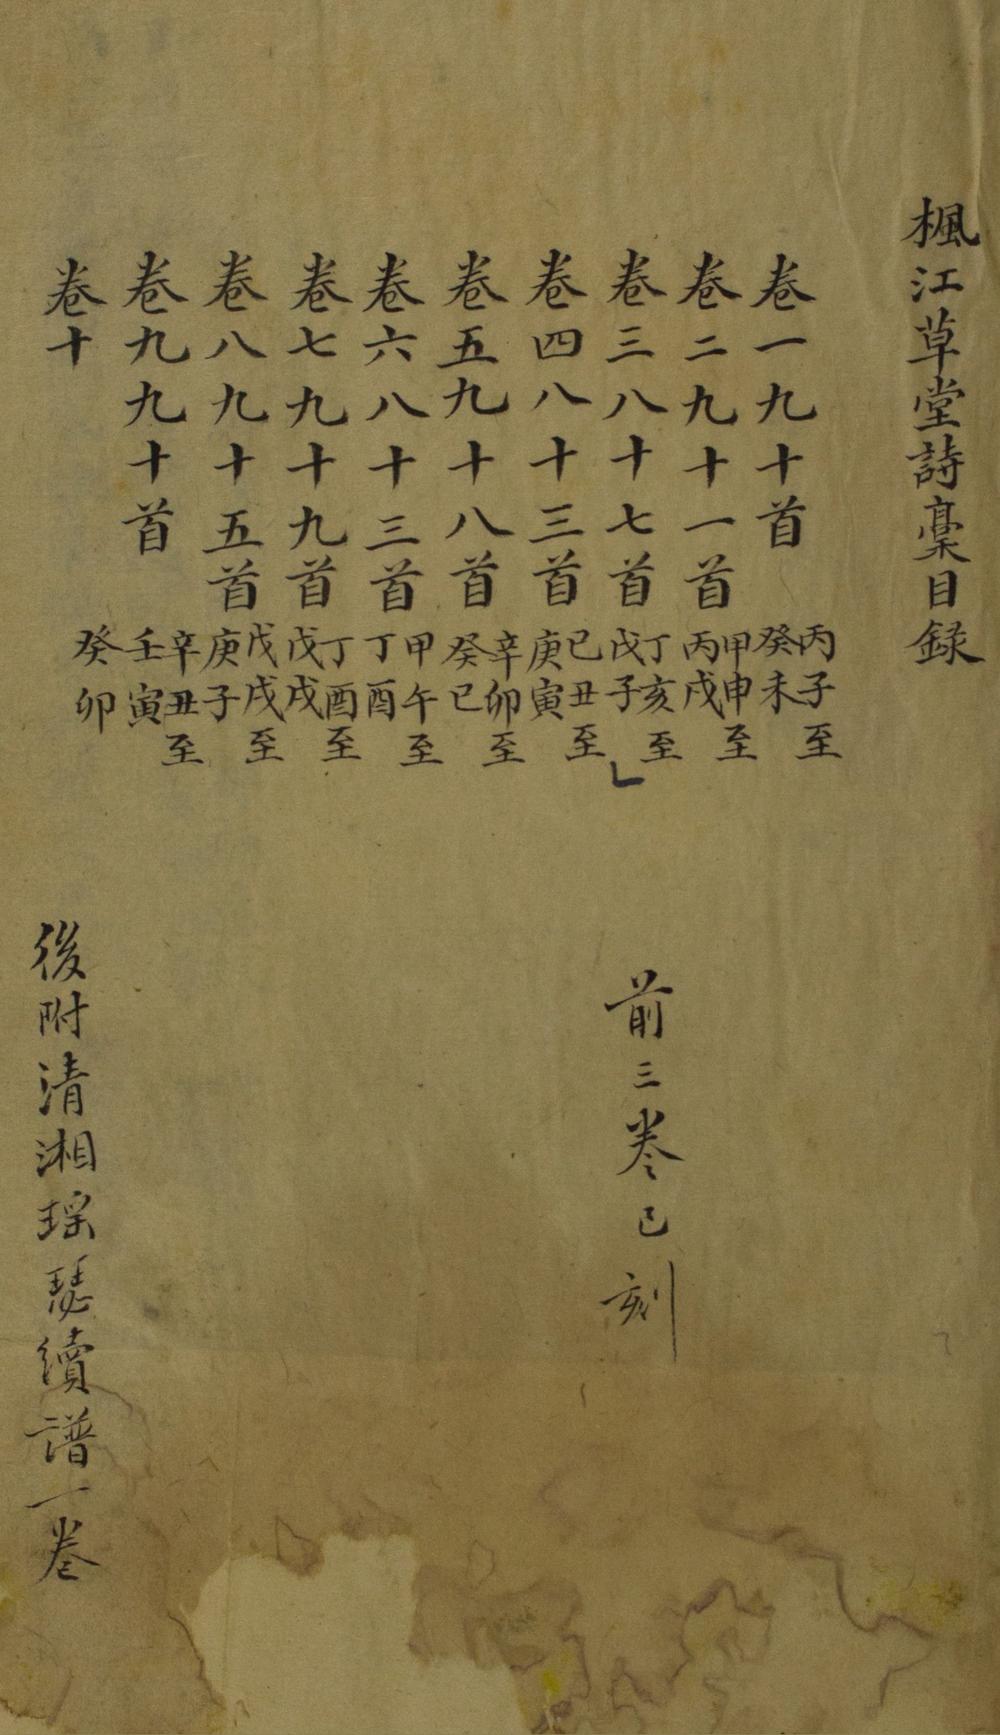 楓江草堂詩稾目録
卷一九十首 丙子至癸未
卷二九十一首 甲申至丙戌
卷三八十七首 丁亥至戊子
前三卷已刻
卷四八十三首 己丑至庚寅
卷五九十八首 辛卯至癸巳
卷六八十三首 甲午至丁酉
卷七九十九首 丁酉至戊戌
卷八九十五首 戊戌至庚子
卷九九十首 辛丑至壬寅
卷十 癸卯
後附清湘瑶瑟續譜一卷